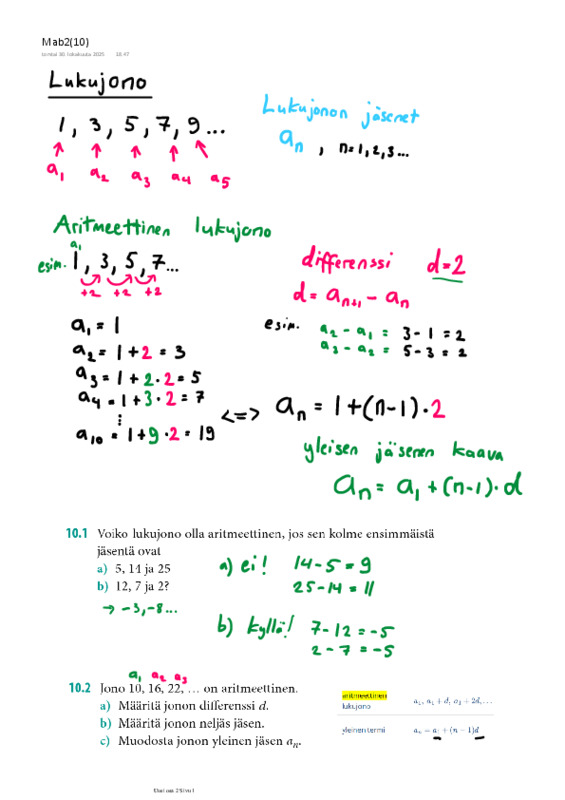 Mab2(10)
18.47
Lukujono
1, 3, 5, 7, 9 ...
a₁ a₂ a₃ a₄ a₅
Lukujonon jäsenet
aₙ , n=1,2,3...
Aritmeettinen lukujono
a₁
esim. 1, 3, 5, 7...
+2 +2 +2
differenssi d=2
d = aₙ₊₁ - aₙ
esim. a₂ - a₁ = 3 - 1 = 2
a₃ - a₂ = 5 - 3 = 2
a₁ = 1
a₂ = 1 + 2 = 3
a₃ = 1 + 2·2 = 5
a₄ = 1 + 3·2 = 7
⋮
a₁₀ = 1 + 9·2 = 19
<=> aₙ = 1 + (n-1)·2
yleisen jäsenen kaava
aₙ = a₁ + (n-1)·d
10.1 Voiko lukujono olla aritmeettinen, jos sen kolme ensimmäistä
jäsentä ovat
a) 5, 14 ja 25
b) 12, 7 ja 2?
→ -3, -8 ...
a) ei! 14 - 5 = 9
25 - 14 = 11
b) kyllä! 7 - 12 = -5
2 - 7 = -5
a₁ a₂ a₃
10.2 Jono 10, 16, 22, … on aritmeettinen.
a) Määritä jonon differenssi d.
b) Määritä jonon neljäs jäsen.
c) Muodosta jonon yleinen jäsen aₙ.
aritmeettinen
lukujono
a₁, a₁ + d, a₁ + 2d, …
yleinen termi aₙ = a₁ + (n − 1)d